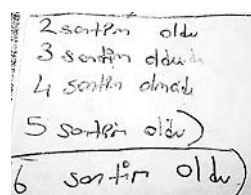 2 santim oldu
3 santim oldu
4 santim olmadı
5 santim oldu)
6 santim oldu)